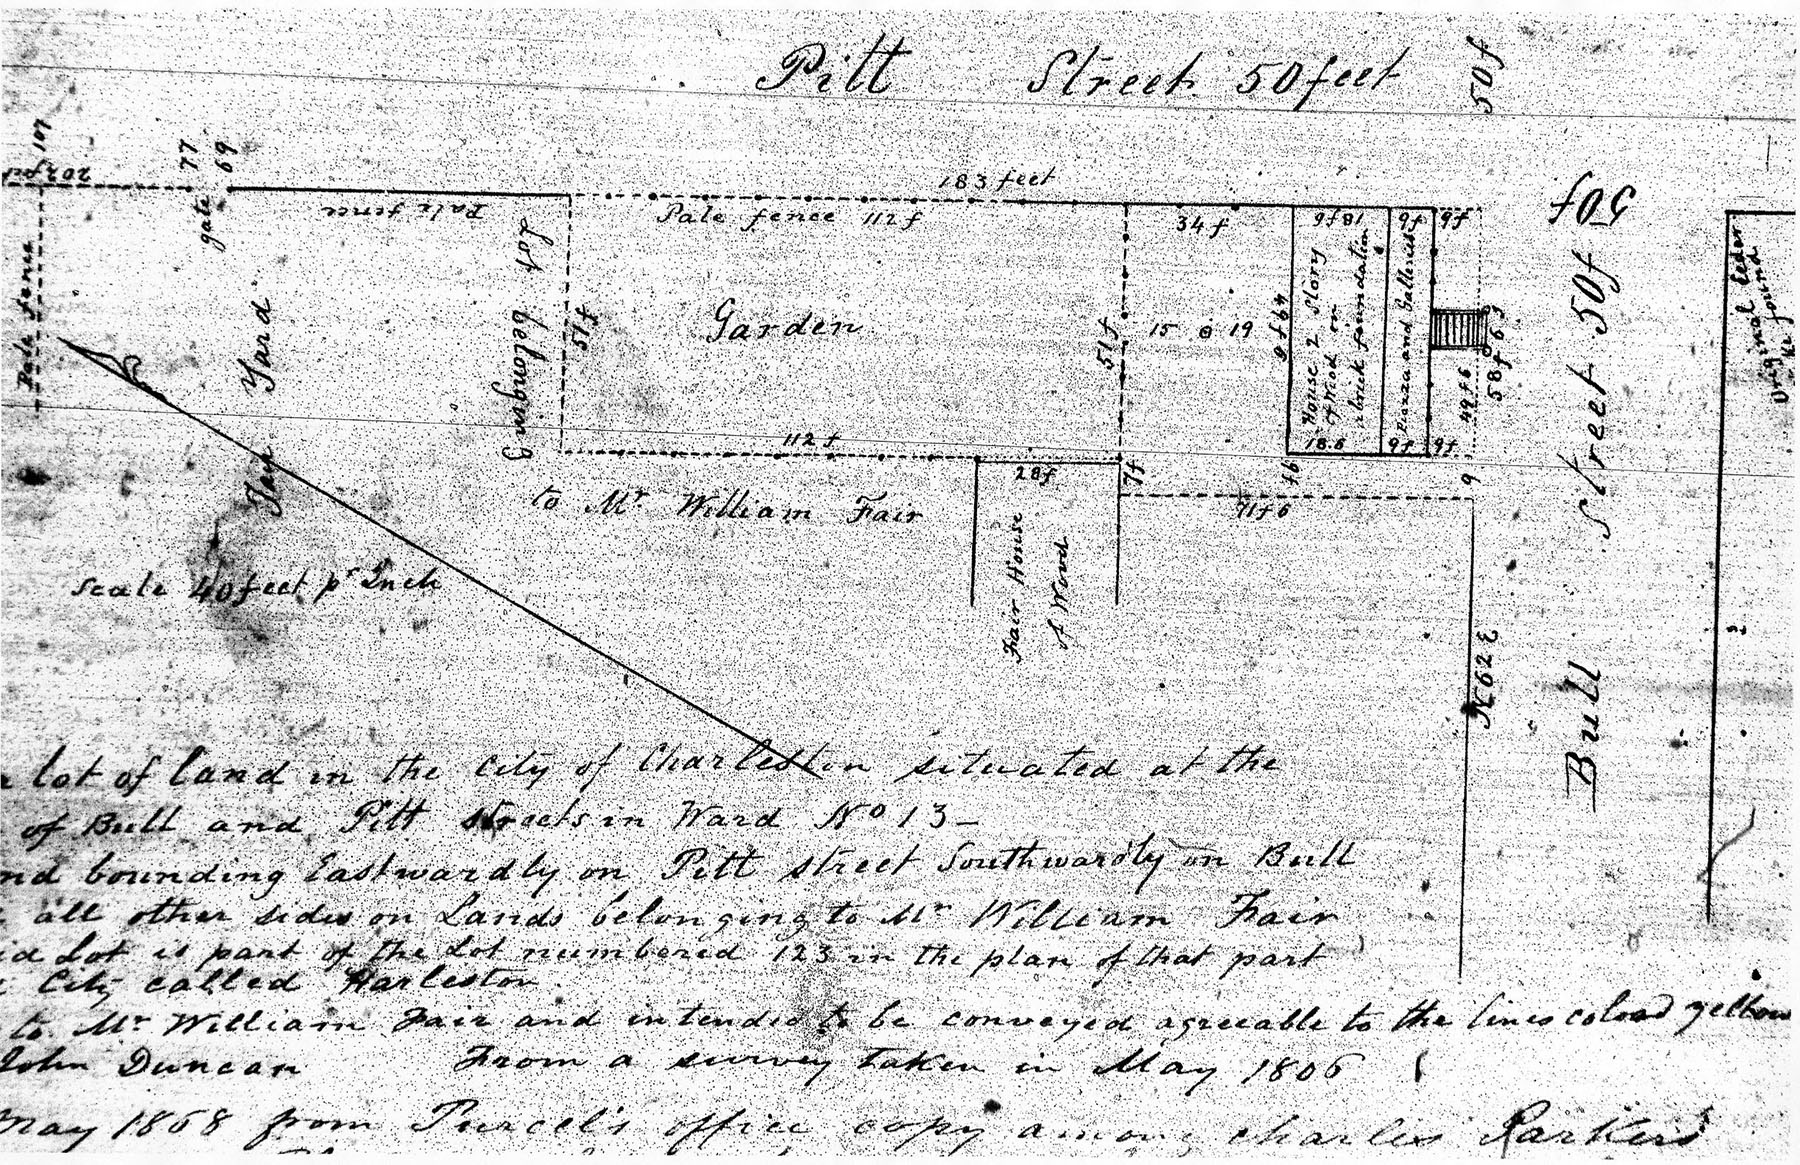 Pitt Street 50 feet
50f
107
20
77
69
gate
Pale fence
Pale fence
183 feet
Pale fence 112 f
34 f
9f 18f
9f
9f
50f
Lot belonging
51f
Garden
51f
15 19
49f 6
House 2 Story
of Wood on
a brick foundation
Piazza and Galleries
49f6
58f 6
18.6
9f
9f
Original Ceder
found
Tan Yard
112 f
28f
7f
46
9
71f6
to Mr William Fair
Fair House
of Wood
Scale 40 feet pr Inch
N62E
Bull Street 50f
lot of land in the City of Charleston situated at the
of Bull and Pitt streets in Ward No 13 –
nd bounding Eastwardly on Pitt street Southwardly on Bull
all other sides on Lands belonging to Mr William Fair
id Lot is part of the Lot numbered 123 in the plan of that part
City called Harleston
to Mr William Fair and intended to be conveyed agreeable to the lines colord yellow
John Duncan From a survey taken in May 1806
May 1868 from Purcel's office copy among charles Parkers